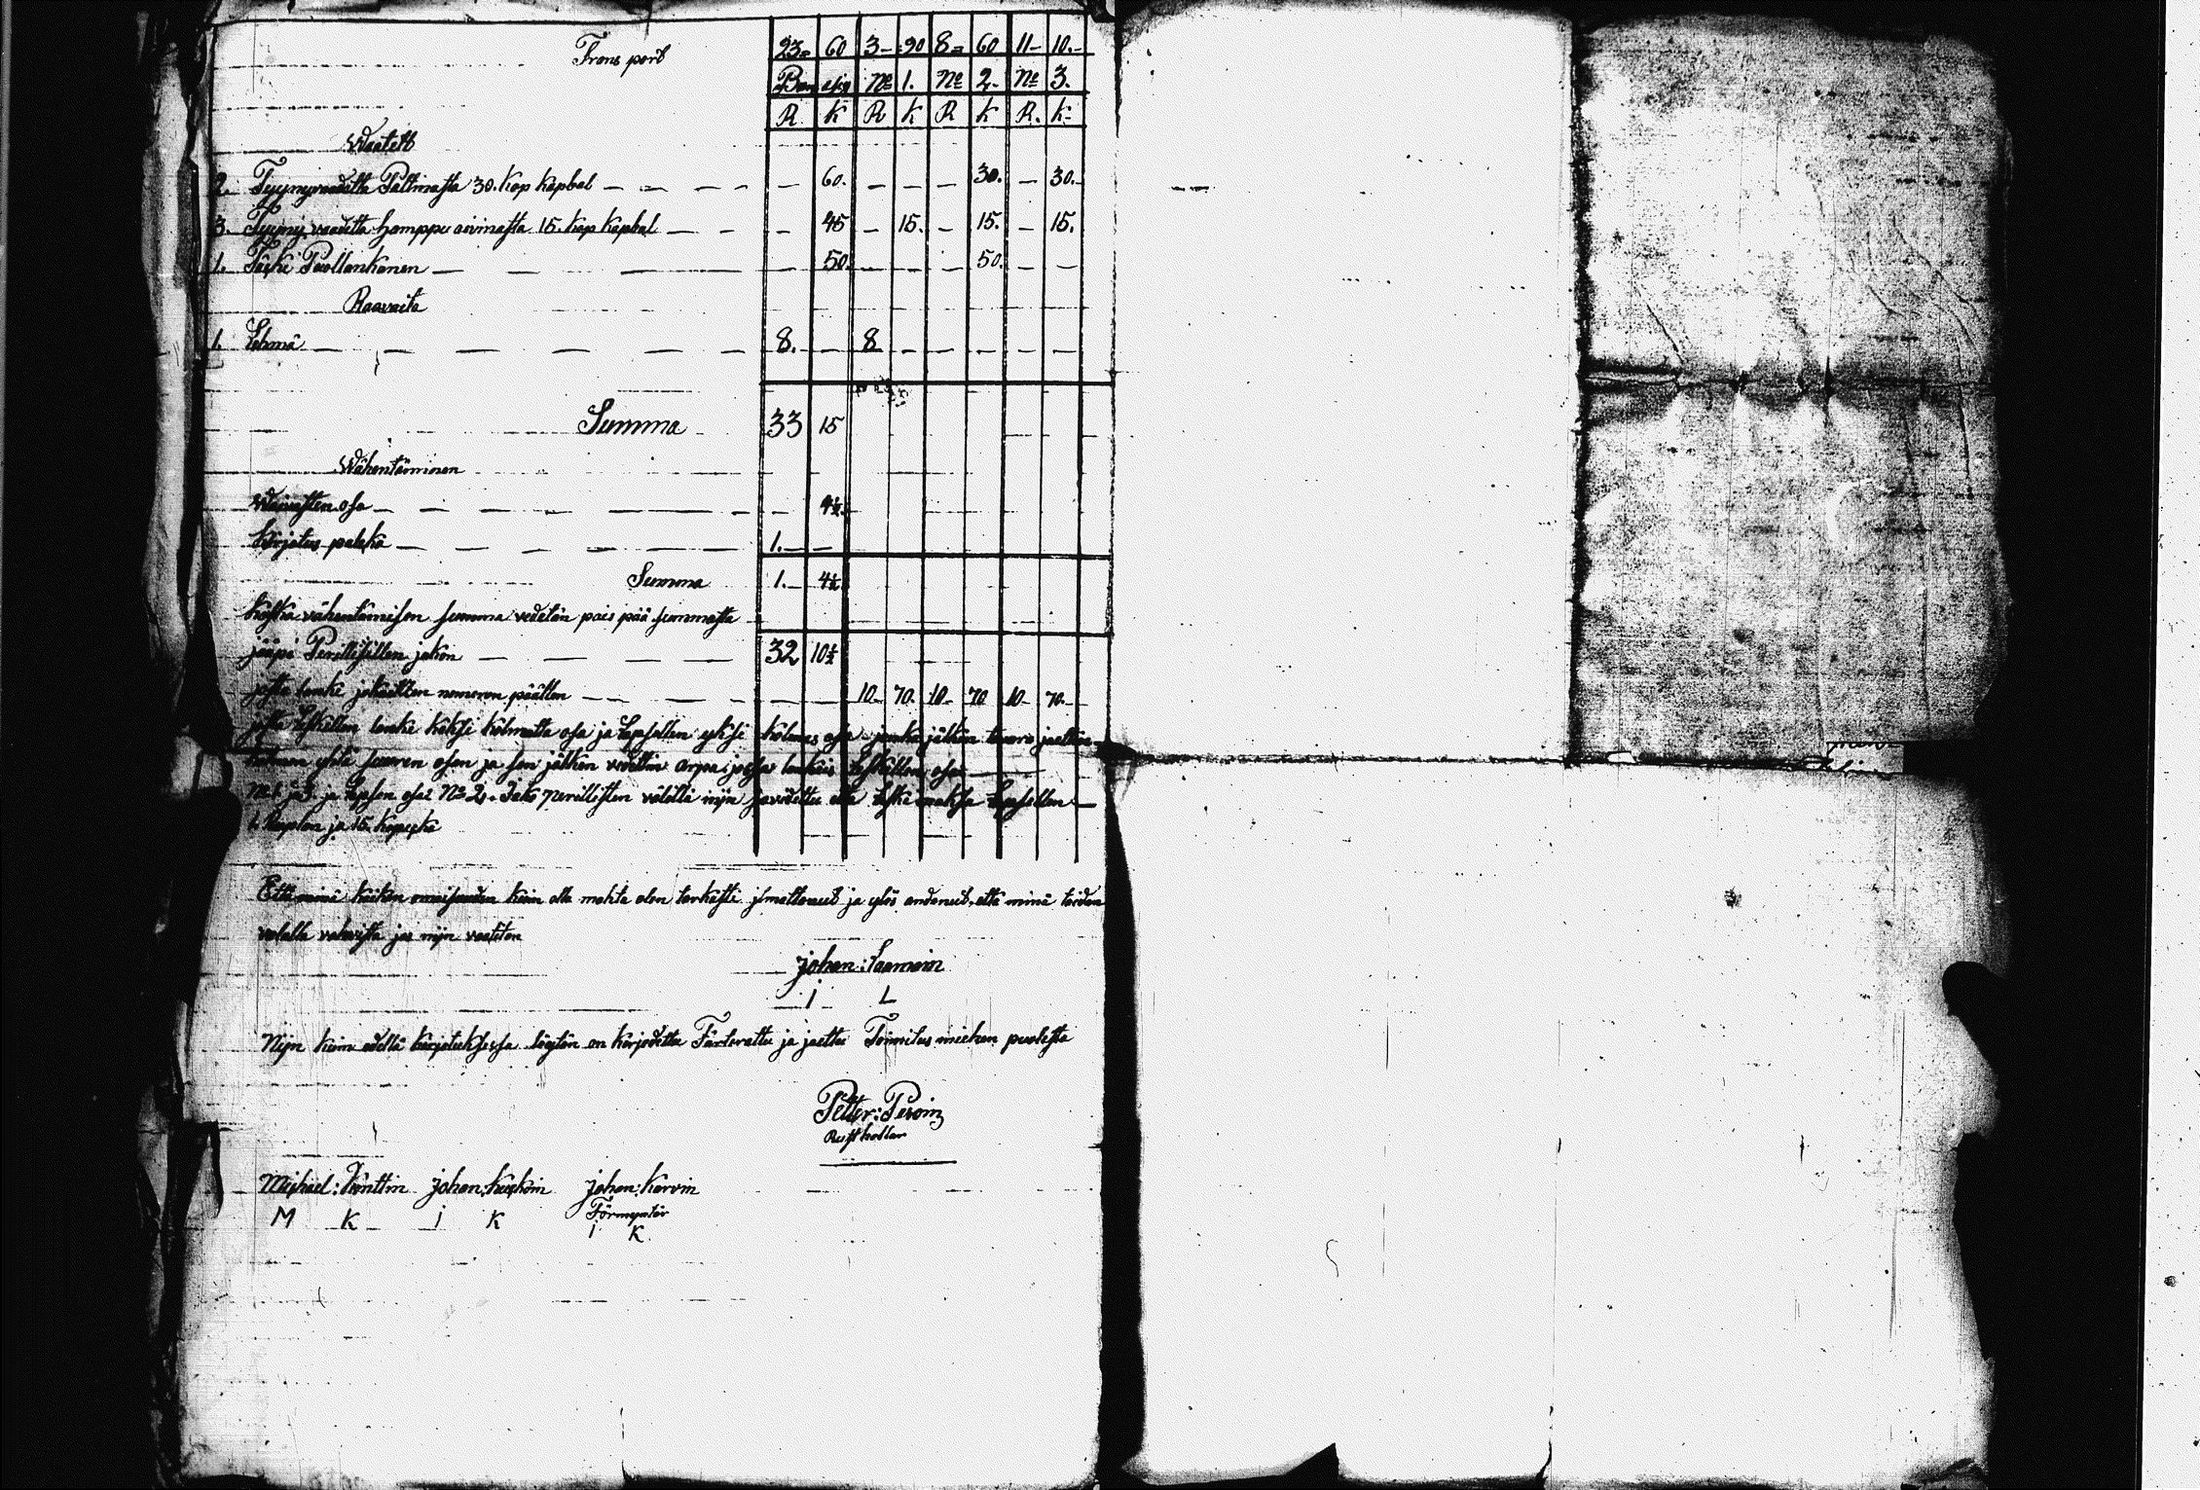 Trans port 23 = 60 3 - 90 8 = 60 11 - 10.-
Ban N° 1. N° 2. N° 3.
R K R K R K R. K.
Waatett
2. Tyynyvaadetta Palttinasta 30. kop kapbal — 60. — — — 30. — 30.
3. Tyyny vaadetta hamppu aivinasta 15. kop kapbal — 45 — 15. — 15. — 15.
1. Paollankanen — 50. — — — 50. — —
Raavaita
1. Lehmä 8. — 8 — — — — —
Summa 33 15
Wähentäminen
Waivasten osa — 4½
kirjotus palkka 1. —
Summa 1. 4½
koska vähentämisen summa vedetän pois pää summasta
jääpi Perillisillen jakon 32 10½
josta lanke jokaitten nomeron päätten 10. 70. 10. 70 10. 70.
josta Leskellen lanke kaksi kolmatta osa ja Lapsellen yksi kolmas osa jonka jälken tavara jaettin
kolmen yhtä suuren osan ja sen jälken vedettin arpa josa lankeis Leskellen osa
N° 1 ja 3 ja Lapsen osa N° 2. Jako Perillisten välillä nijn että Leski maksa Lapsellen
1. Ruplan ja 15. kopekka
Että minä kaiken omaisuuden kuin olla mahta olen tarkasti jlmottanut ja ylös andanut, että minä taidan
valalla vahvista jos nijn vaaditan
Johan: Laamain
I L
Nijn kuin edellä kirjotuksessa löytän on kirjodettu Färterattu ja jaettu Toimitus miehen puolesta
Petter: Pevoin
Rusthollar
Michael: Könttin Johan: Johan: Karvin
M K I K Förmyntär
I K.